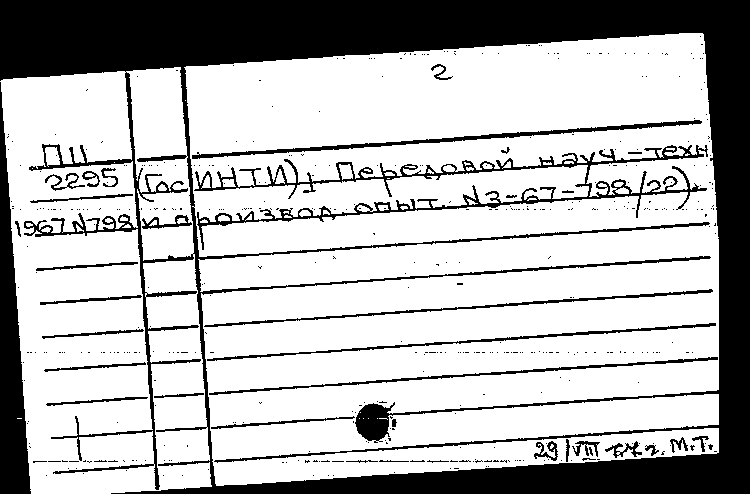 2
ПЦ
2295 (ГосИНТИ), Передовой науч.-техн
1967 N798 и производ. опыт. N3-67-798/22).
29/VIII г. М.Т.